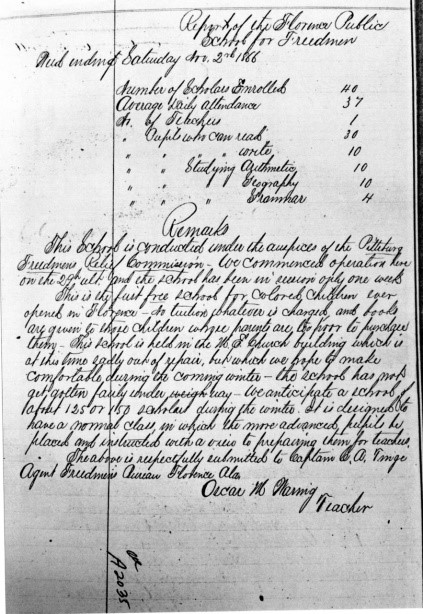 Report of the Florence Public
School for Freedmen
Week ending Saturday Nov. 2nd 1866
Number of Scholars Enrolled 40
Average Daily attendance 37
No. of Teachers 1
" Pupils who can read 30
" " " " write 10
" " Studying Arithmetic 10
" " " Geography 10
" " " Grammar 4
Remarks
This School is conducted under the auspices of the Pittsburg
Freedmens Relief Commission - We commenced operation here
on the 29th ult. and the school has been in session only one week
This is the first free school for colored children ever
opened in Florence - No tuition whatever is charged, and books
are given to those children whose parents are too poor to purchase
them - This school is held in the M. E. Church building which is
at this time sadly out of repair, but which we hope to make
comfortable during the coming winter - the school has not
yet gotten fairly under weigh way - We anticipate a school of
about 125 or 150 scholars during the winter. It is designed to
have a normal class, in which the more advanced, pupils be
placed and instructed with a view to preparing them for teachers.
The above is respectfully submitted to Captain C. A. Tinge
Agent Freedmens Bureau Florence Ala.
Oscar M Waring
Teacher
A2035